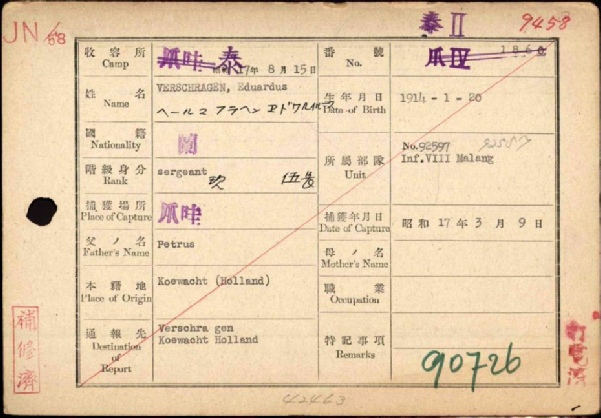 JN/68
泰II
9458
收容所 Camp
爪哇 泰
17年 8月 15日
番號 No.
爪IV
姓名 Name
VERSCHRAGEN, Eduardus
生年月日 Date of Birth
1914 - 1 - 20
國籍 Nationality
蘭
所屬部隊 Unit
No.92597
Inf.VIII Malang
階級身分 Rank
sergeant
捕獲場所 Place of Capture
爪哇
捕獲年月日 Date of Capture
昭和 17年 3月 9日
父ノ名 Father's Name
Petrus
母ノ名 Mother's Name
本籍地 Place of Origin
Koewacht (Holland)
職業 Occupation
通報先 Destination of Report
Verschra gen
Koewacht Holland
特記事項 Remarks
90726
補修濟
42463